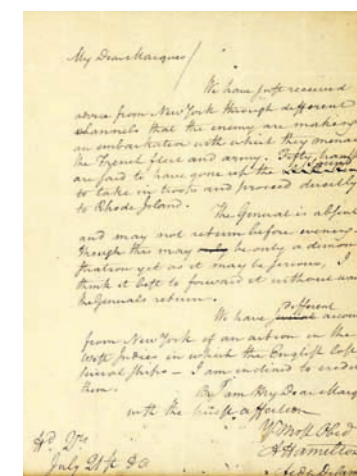 My Dear Marquis
We have just received
advice from New York through different
channels that the enemy are making
an embarkation with which they menace
the French fleet and army. Fifty transports
are said to have gone up the Sound
to take in troops and proceed directly
to Rhode Island.
The General is absent
and may not return before evening.
Though this may only be only a demon
stration yet as it may be serious, I
think it best to forward it without waiting
the Generals return.
We have different accounts
from New York of an action in the
West Indies in which the English lost
several ships – I am inclined to credit
them.
I am My Dear Marquis
with the truest affection
Yr Most Obed
A Hamilton
Aide De Camp
July 21st 80